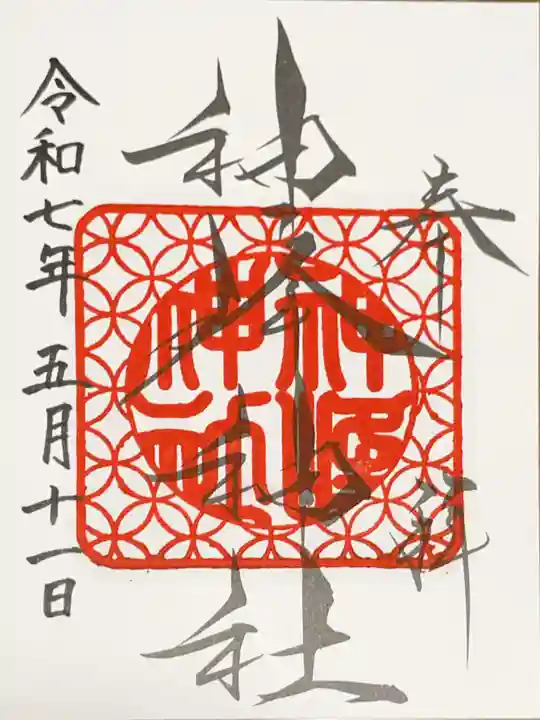 奉拝
神 神社
令和七年 五月十一日